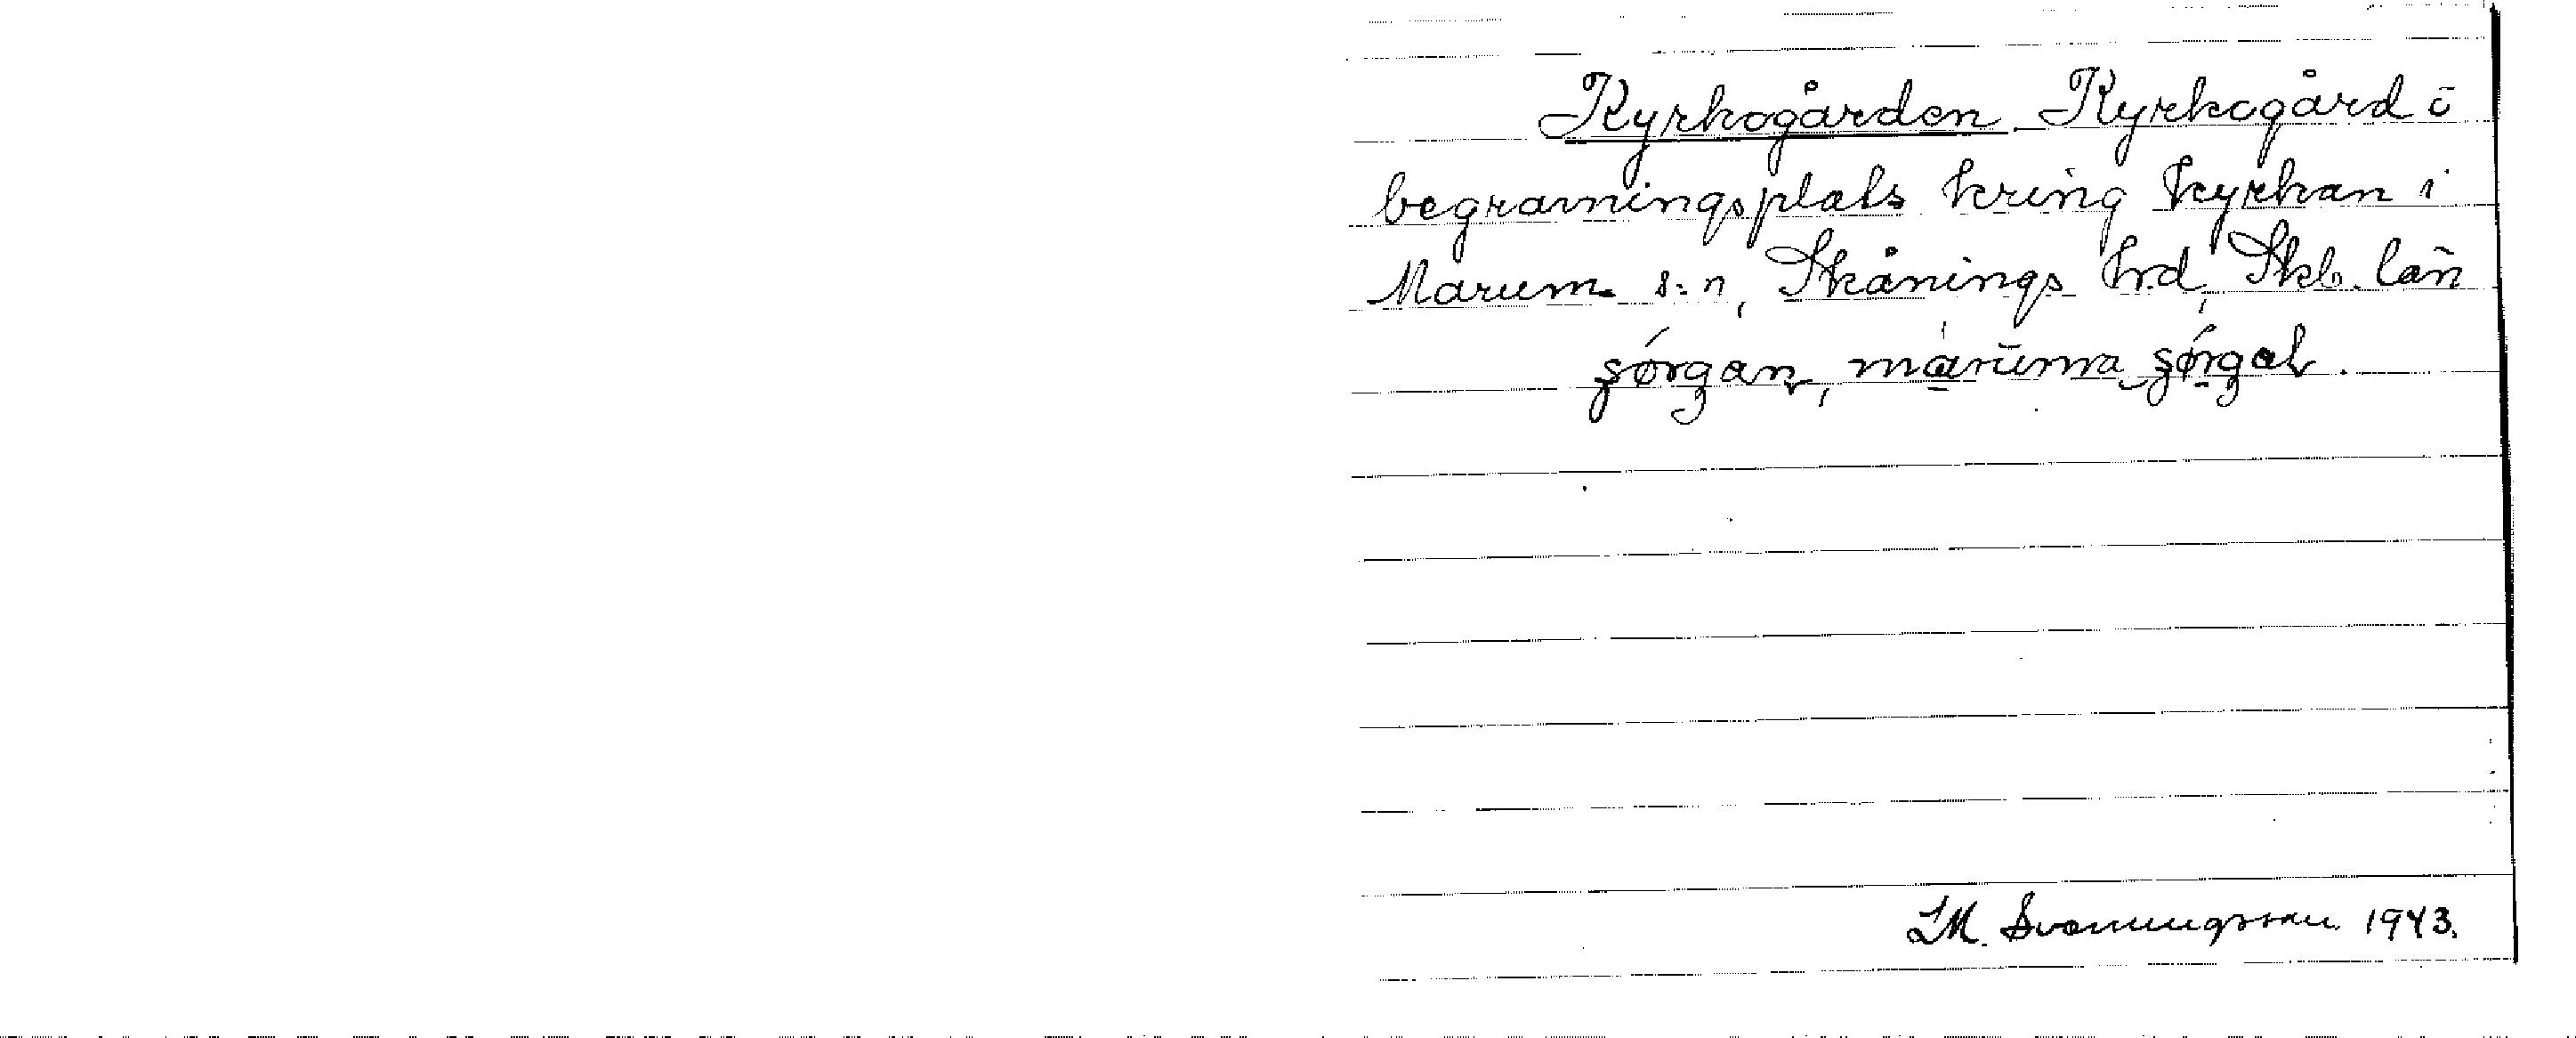 Kyrkogården. Kyrkogård o
begravningsplats kring kyrkan i
Marum s:n, Skånings hrd, Skb. län
marŭma
LM. Svenungsson 1943.